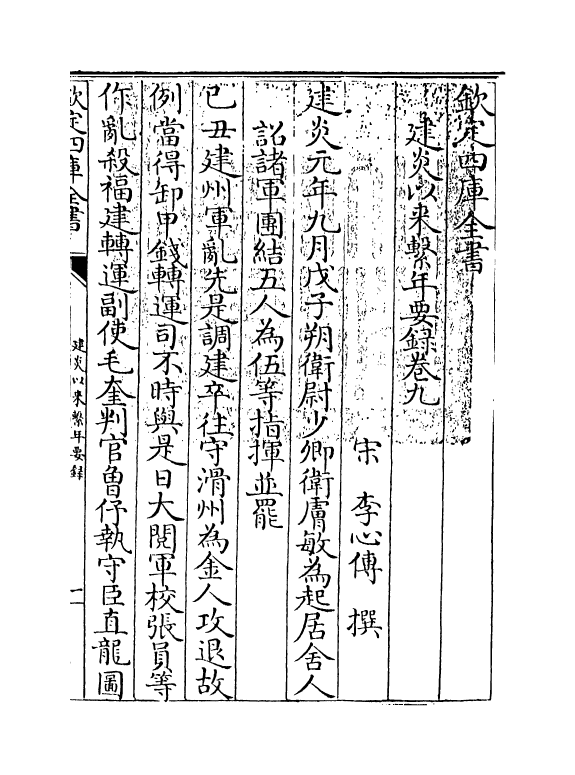 欽定四庫全書
建炎以来繫年要録卷九
宋　李心傳　撰
建炎元年九月戊子朔衛尉少卿衛膚敏為起居舍人
詔諸軍團結五人為伍等指揮並罷
己丑建州軍亂先是調建卒往守滑州為金人攻退故
例當得卸甲錢轉運司不時與是日大閱軍校張員等
作亂殺福建轉運副使毛奎判官曾伃執守臣直龍圖
欽定四庫全書
建炎以来繫年要録
一